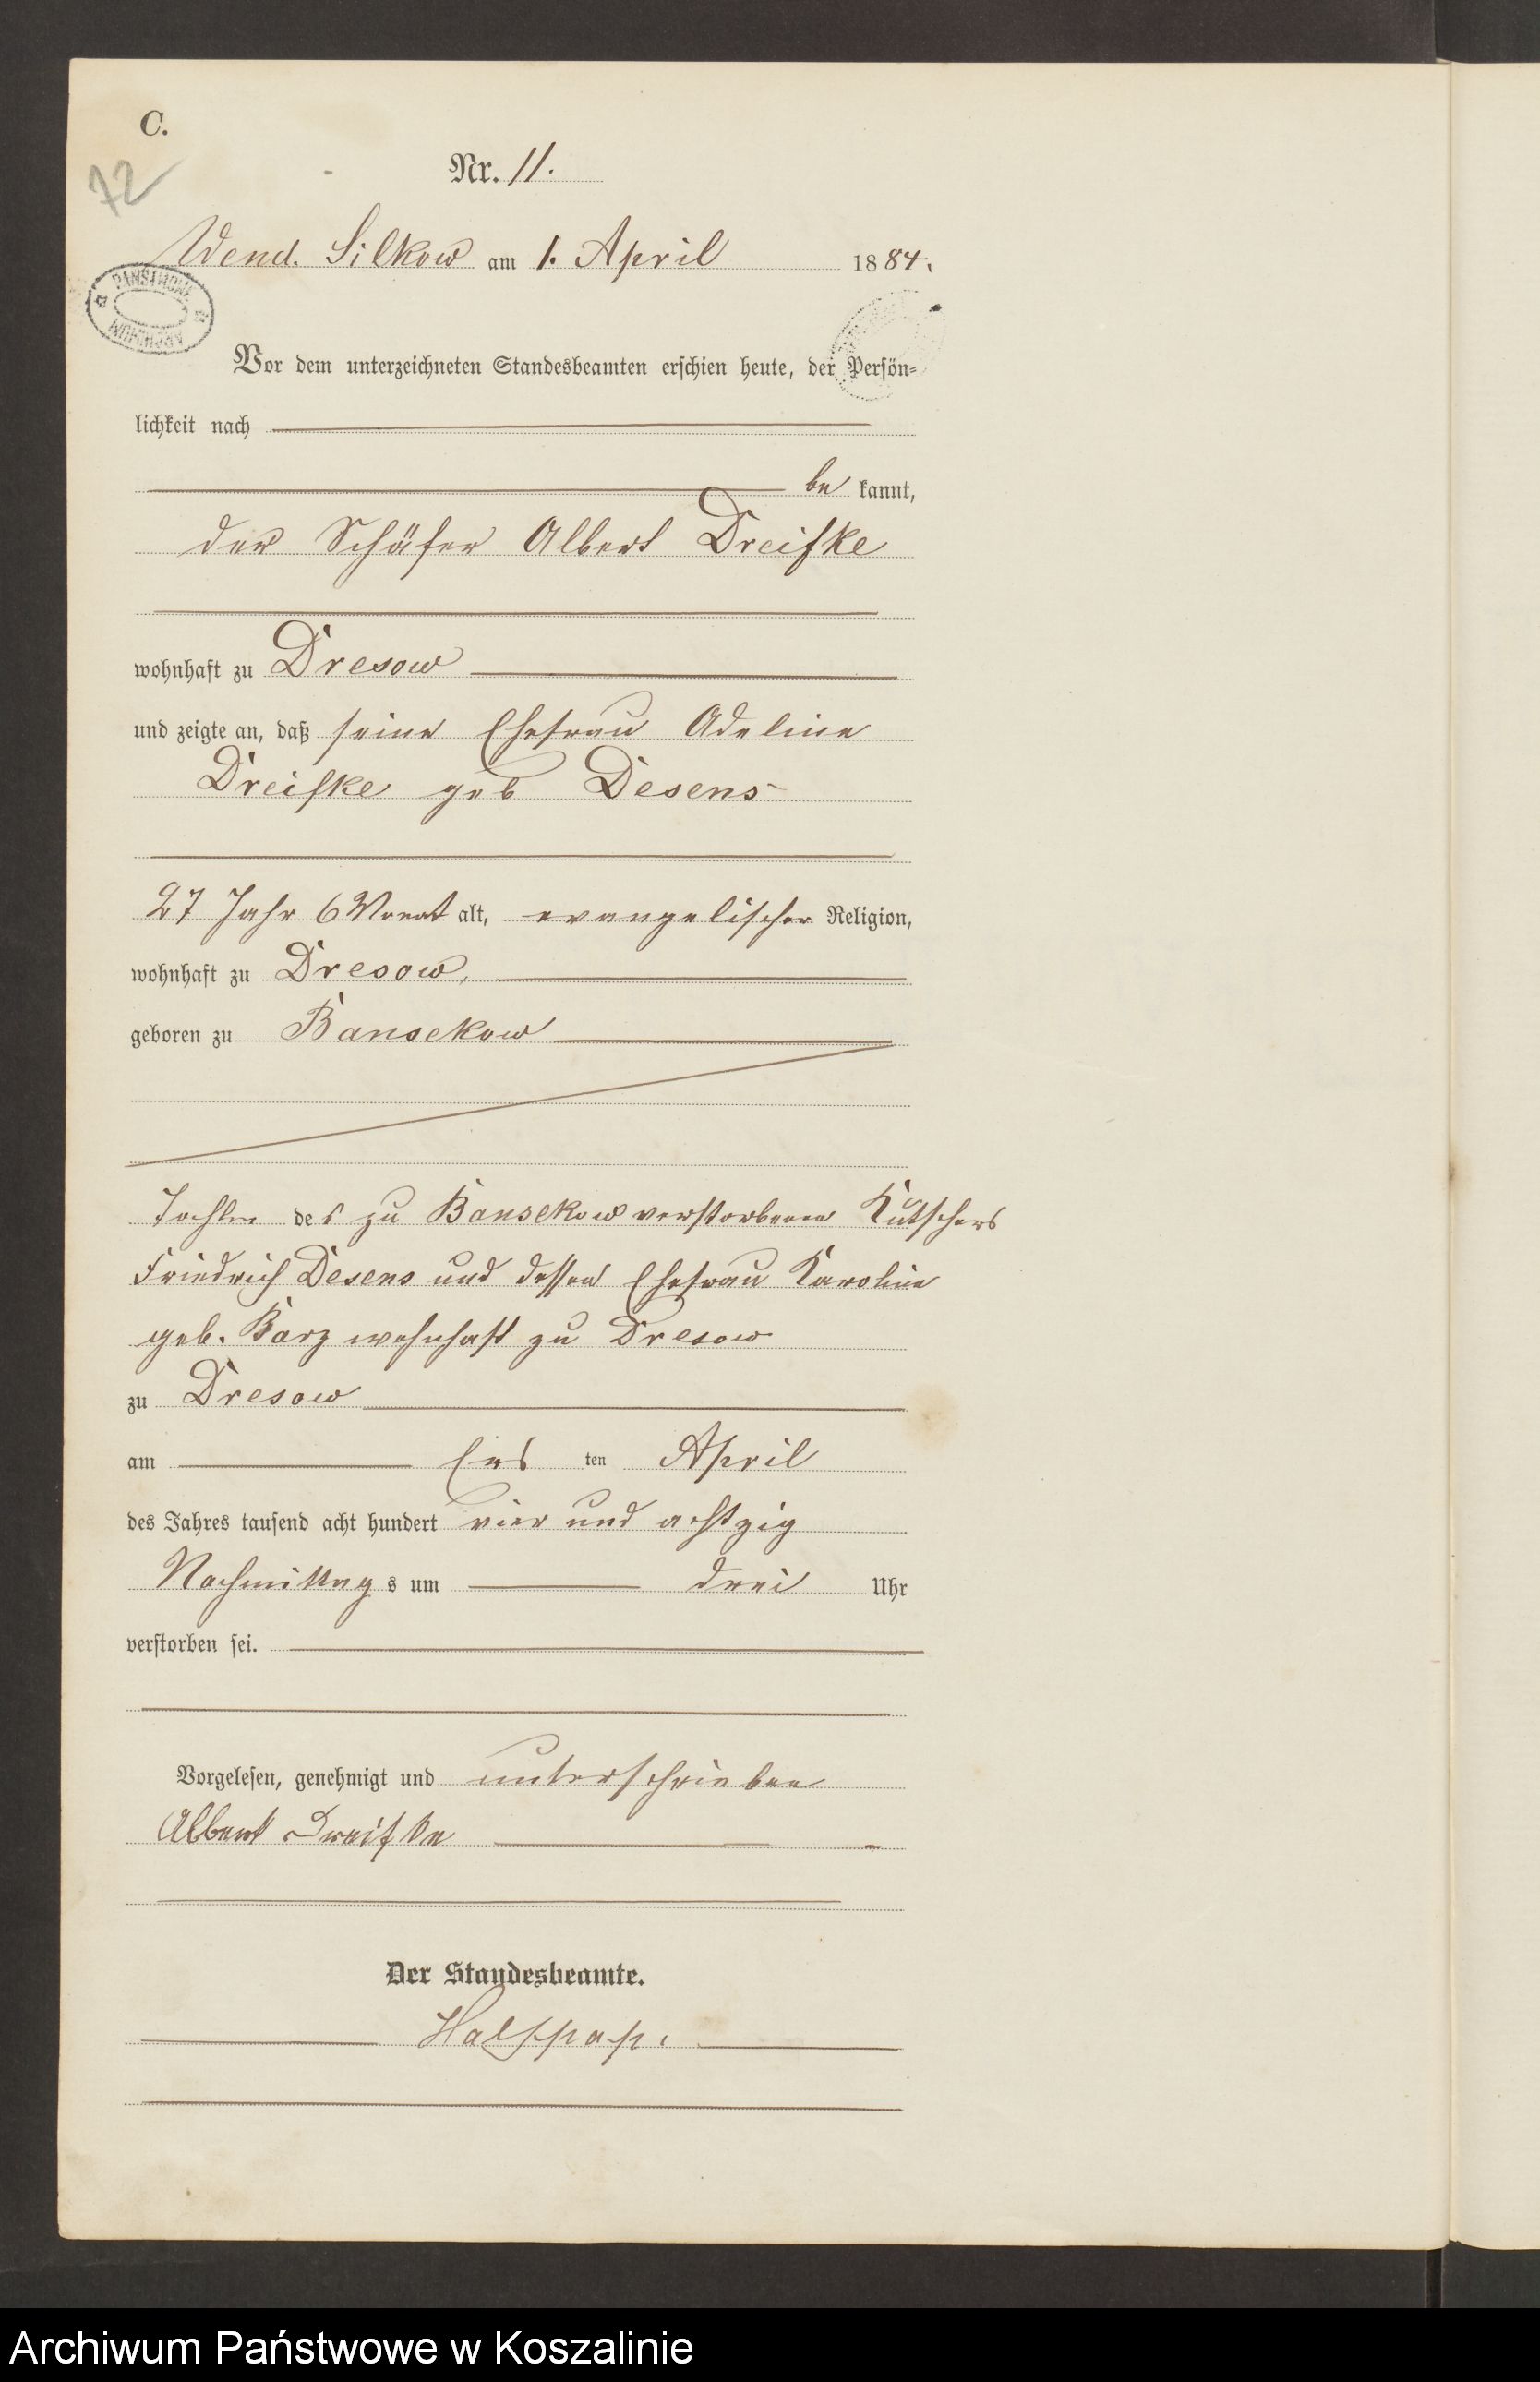 C.
72
Nr. 11.
Wend. Silkow am 1. April 1884.
PAŃSTWOWE
ARCHIWUM
Vor dem unterzeichneten Standesbeamten erschien heute, der Persön-
lichkeit nach
be kannt,
der Schäfer Albert Dreifke
wohnhaft zu Dresow
und zeigte an, daß seine Ehefrau Adeline
Dreifke geb Desens
27 Jahr 6 Monat alt, evangelischer Religion,
wohnhaft zu Dresow,
geboren zu Bansekow
Tochter des zu Bansekow verstorbenen Kutschers
Friedrich Desens und dessen Ehefrau Karoline
geb. Barz wohnhaft zu Dresow
zu Dresow
am Ers ten April
des Jahres tausend acht hundert vier und achtzig
Nachmittag s um drei Uhr
verstorben sei.
Vorgelesen, genehmigt und unterschrieben
Albert Dreifke
Der Standesbeamte.
Halfpap.
Archiwum Państwowe w Koszalinie